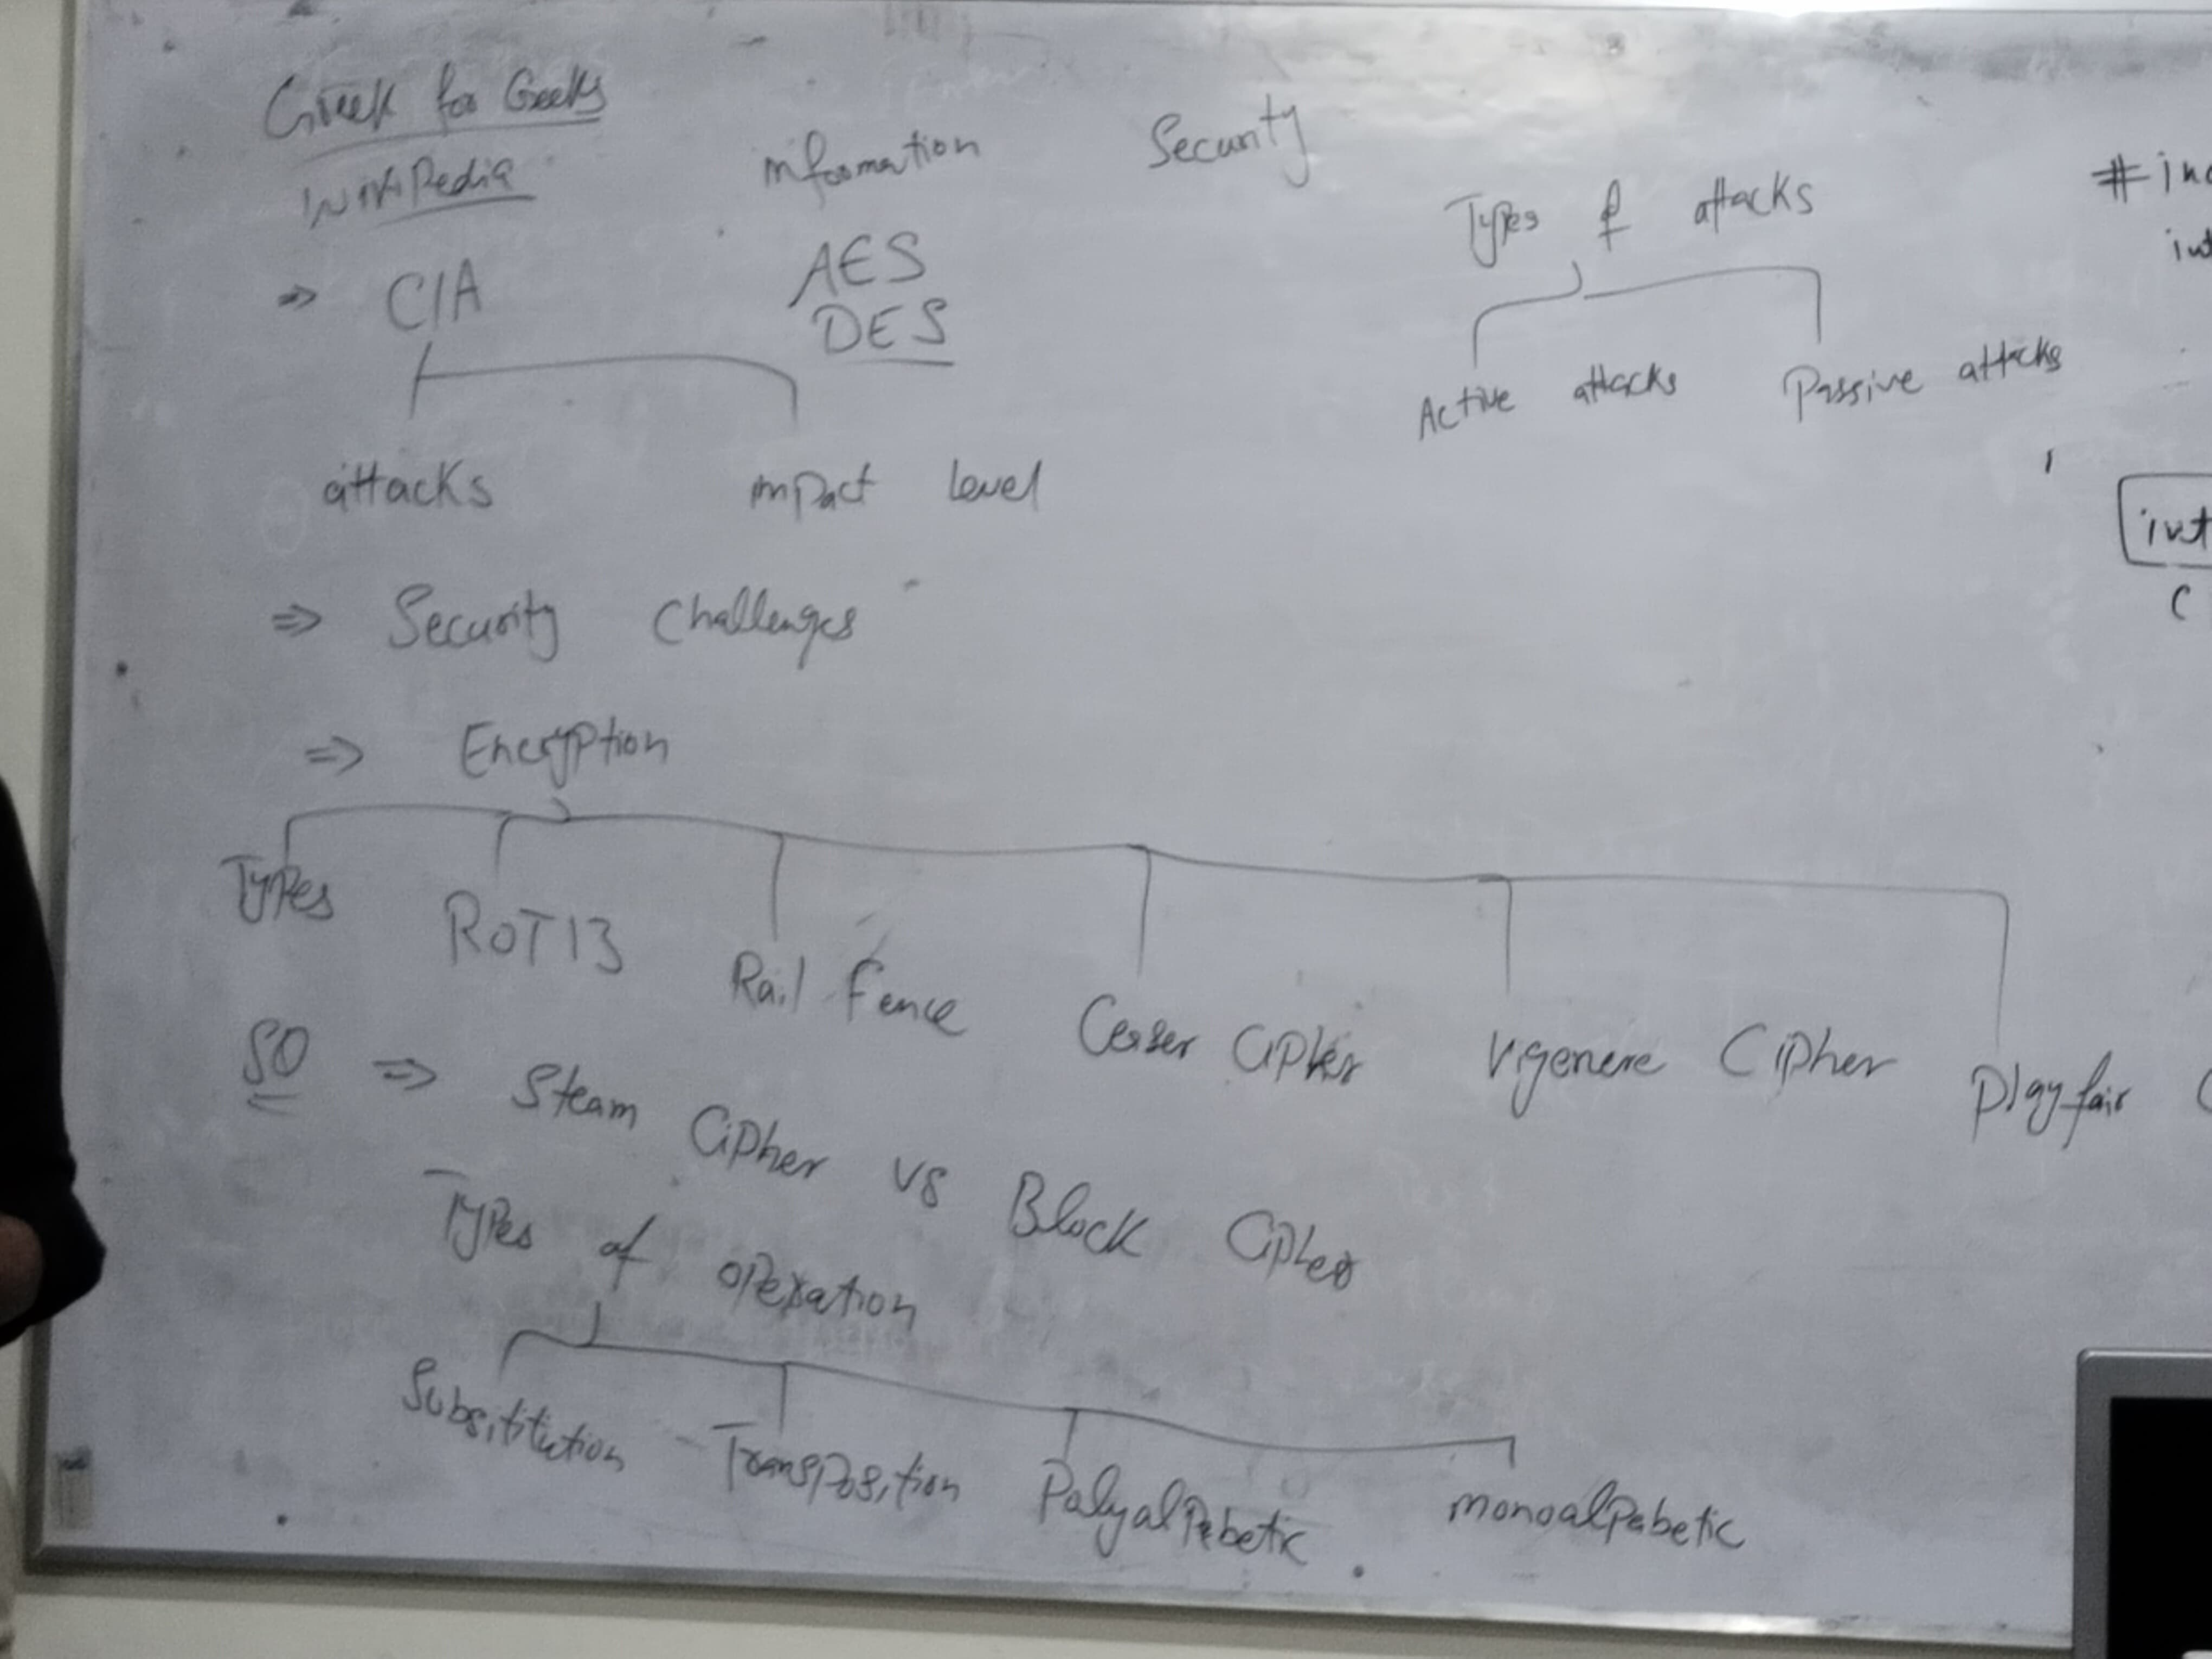 Greek for Geeks
WikiPedia
information Security
⇒ CIA
AES
DES
attacks impact level
Types of attacks
Active attacks Passive attacks
⇒ Security Challenges
⇒ Encryption
Types ROT13 Rail Fence Ceaser Cipher Vigenere Cipher Playfair C
50 ⇒ Steam Cipher vs Block Cipher
Types of operation
Subsititution Transposition Palyalpabetic monoalpabetic
#inc
int
int
C